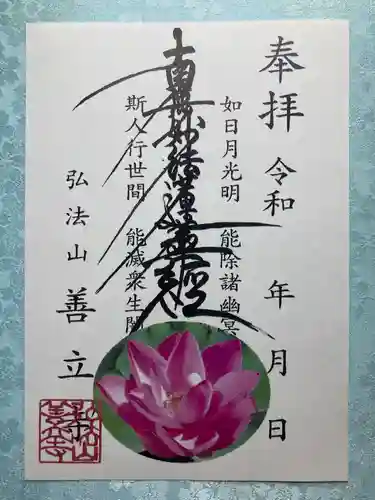 奉拝 令和 年 月 日
如日月光明 能除諸幽冥
南無妙法蓮華経
斯人行世間 能滅衆生闇
弘法山 善立寺